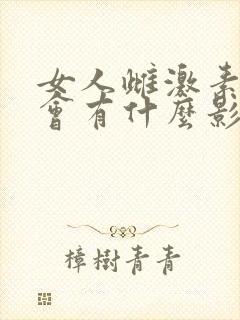 女人雌激素
會有什麼影
樟樹青青